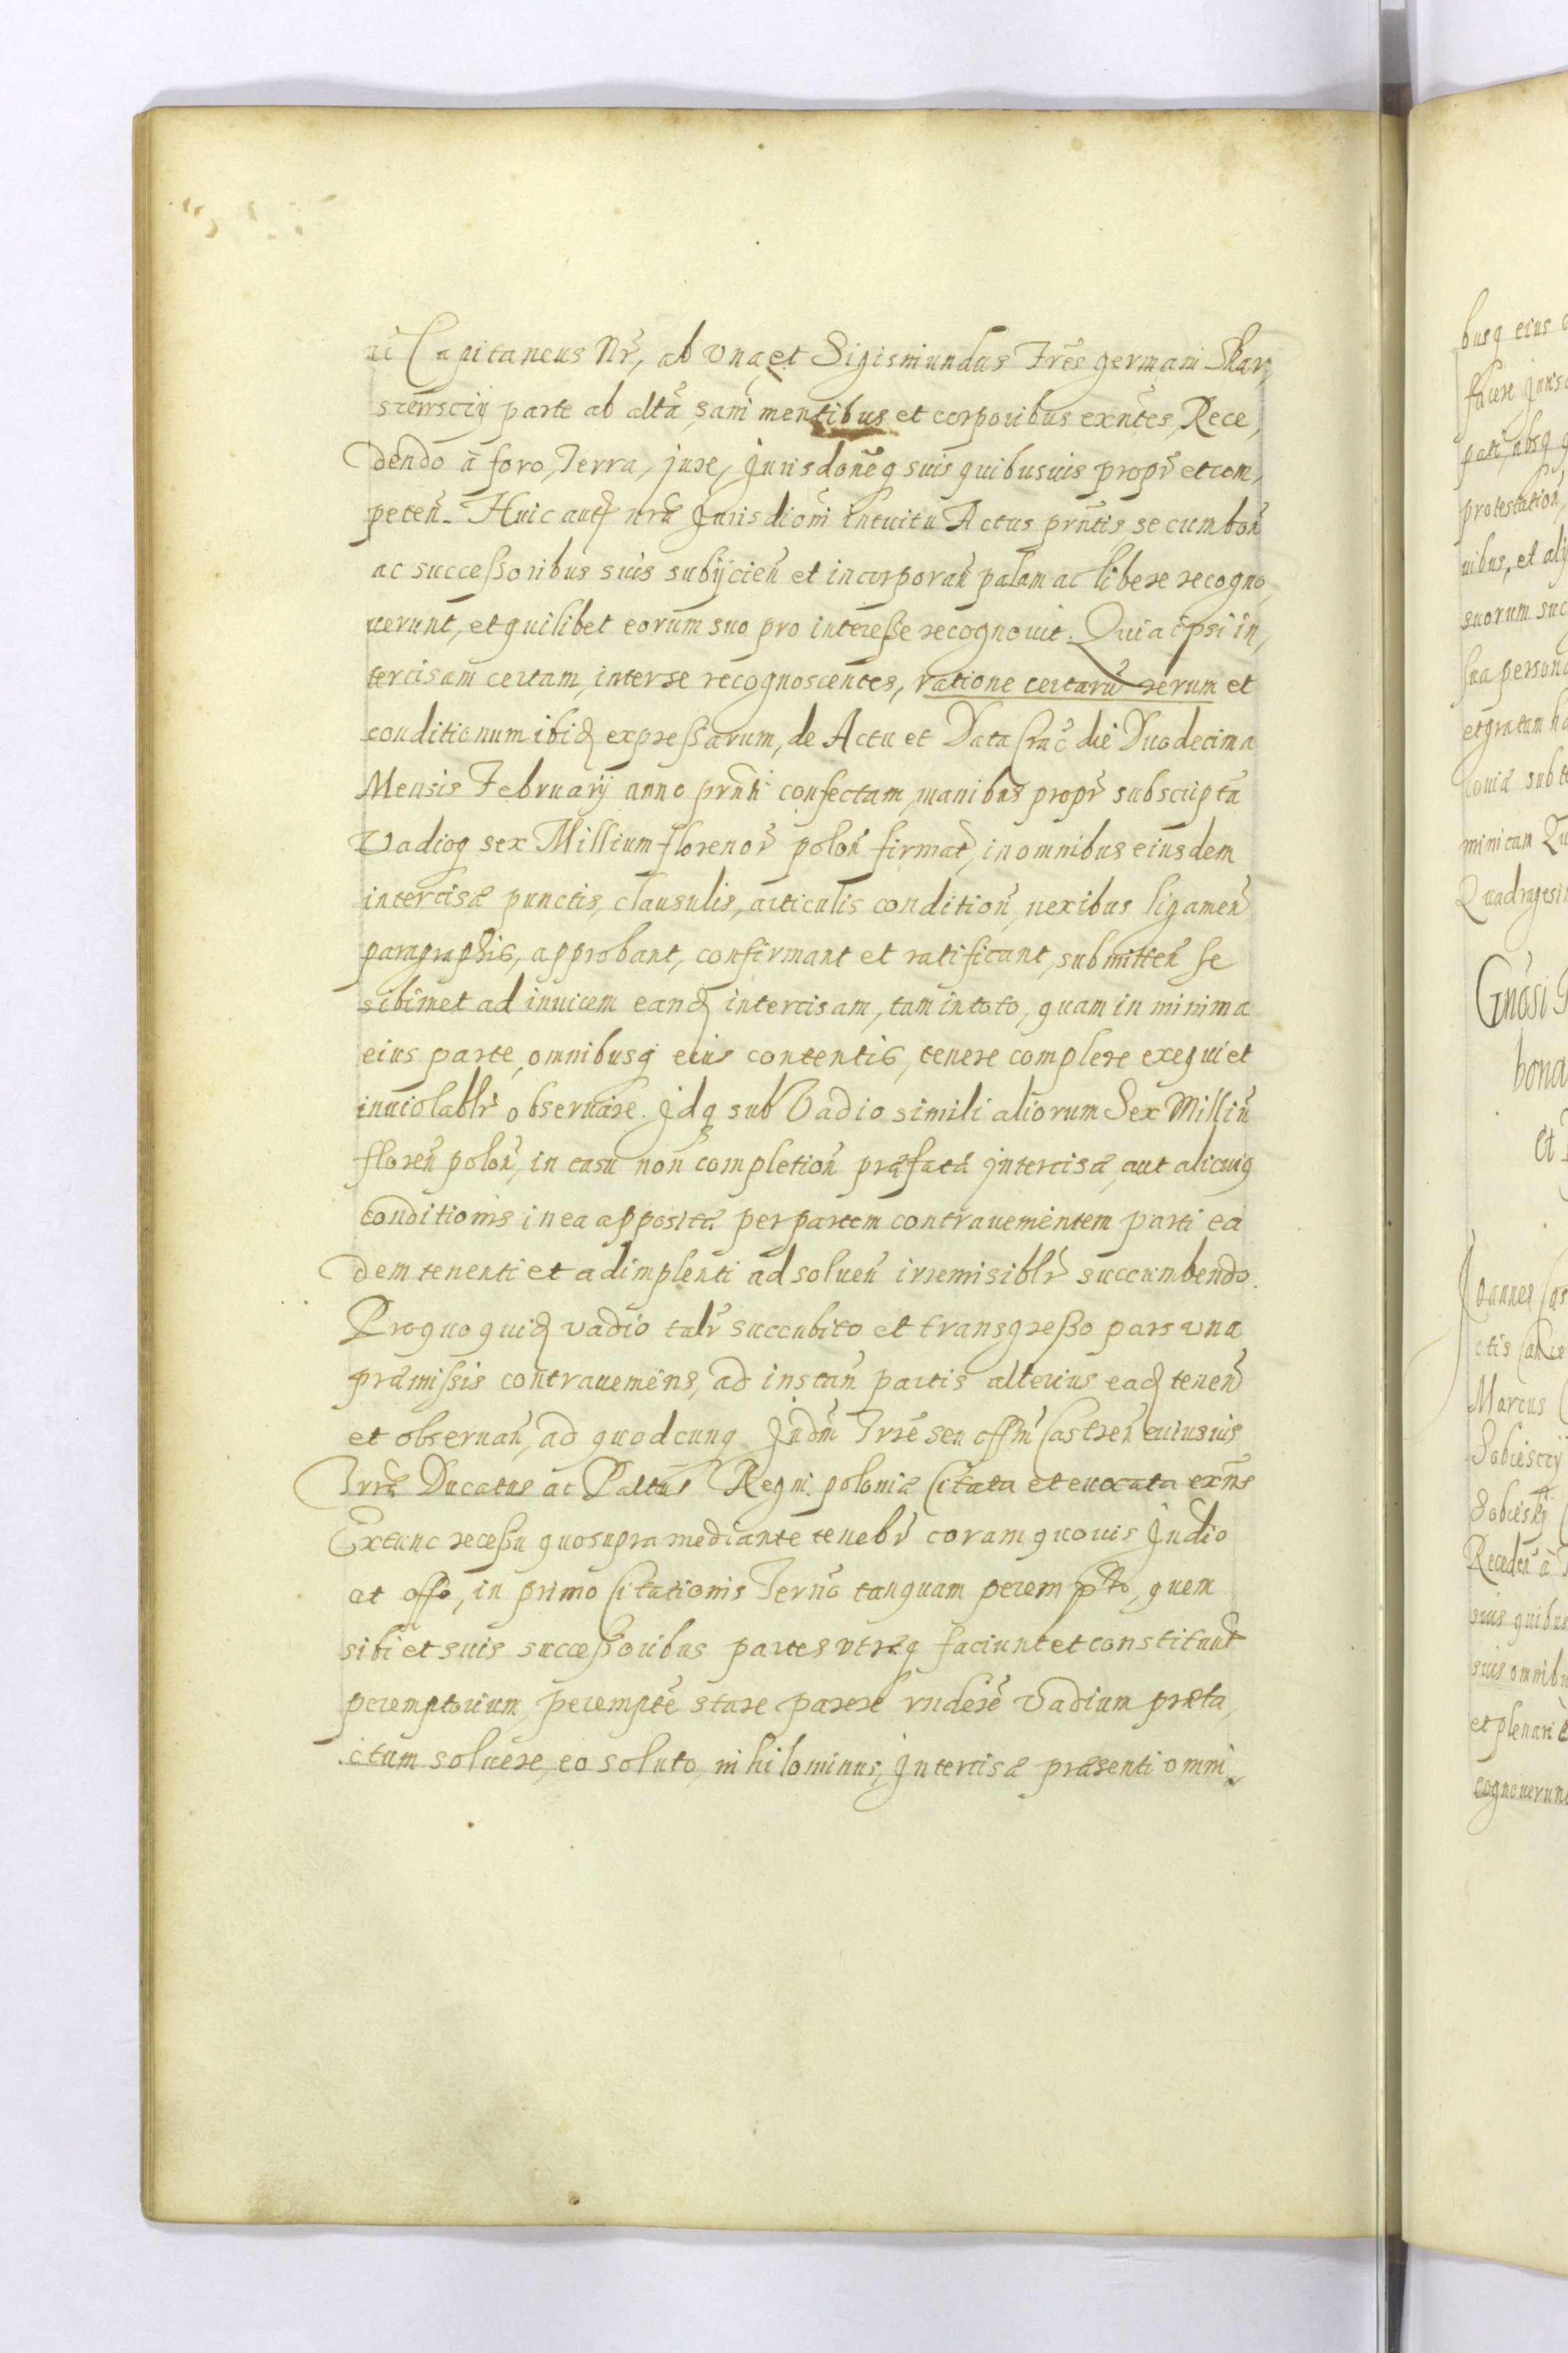 ac Capitaneus Nr̃, ab vna, et Sigismundus Frẽs germani Skar,
szewsciy parte ab altã, sani mentibus et corporibus exñtes, Rece,
dendo à foro, Terra, jure, Jurisdoñeq suis quibusuis propr̃ et com,
peteñ. Huic autẽ nrã Jurisdioñi intuitu Actus prñtis se cum boñ
ac successoribus suis subijcieñ et incorporañ palam ac libere recogno,
uerunt, et quilibet eorum suo pro interesse recognouit. Quia ipsi in,
tercisam certam, inter se recognoscentes, ratione certarũ rerum et
conditionum ibid expressarum, de Actu et Data Crac̃ die Duodecima
Mensis February anno prñti confectam, manibus propr̃ subscriptã
Vadioq sex Millium florenor̃ poloñ firmat̃, in omnibus eiusdem
intercisæ punctis, clausulis, articulis conditioñ, nexibus ligameñ
paragraphis, approbant, confirmant et ratificant, submitteñ se
sibimet ad inuicem eand intercisam, tam in toto, quam in minima
eius parte, omnibusq eius contentis, tenere complere exequi et
inuiolablr̃ obseruare. Jdq sub Vadio simili aliorum Sex Milliũ
floreñ poloñ, in casu non completioñ præfatæ jntercisæ, aut alicuiq
conditionis in ea appositæ per partem contrauenientem parti ea
dem tenenti et adimplenti ad solueñ irremisiblr̃ succumbendo.
Pro quo quid vadio talr̃ succubito et transgresso pars vna
præmissis contraueniens, ad instañ partis alterius ead teneñ
et obseruañ, ad quodcunq Judm̃ Trrẽ seu offm̃ Castreñ cuiusuis
Trræ Ducatus ac Paltũs Regni poloniæ Citata et euocata exñs
Extunc recessu quo supra mediante tenebr̃ coram quouis Judio
at offo, in primo Citationis Terno tanquam perempto, quem
sibi et suis successoribus partes vtræq faciunt et constituut
peremptorium, perempte stare parere rndere Vadium præta,
ctum soluere, eo soluto, nihilominus, Jntercisæ præsenti omni,